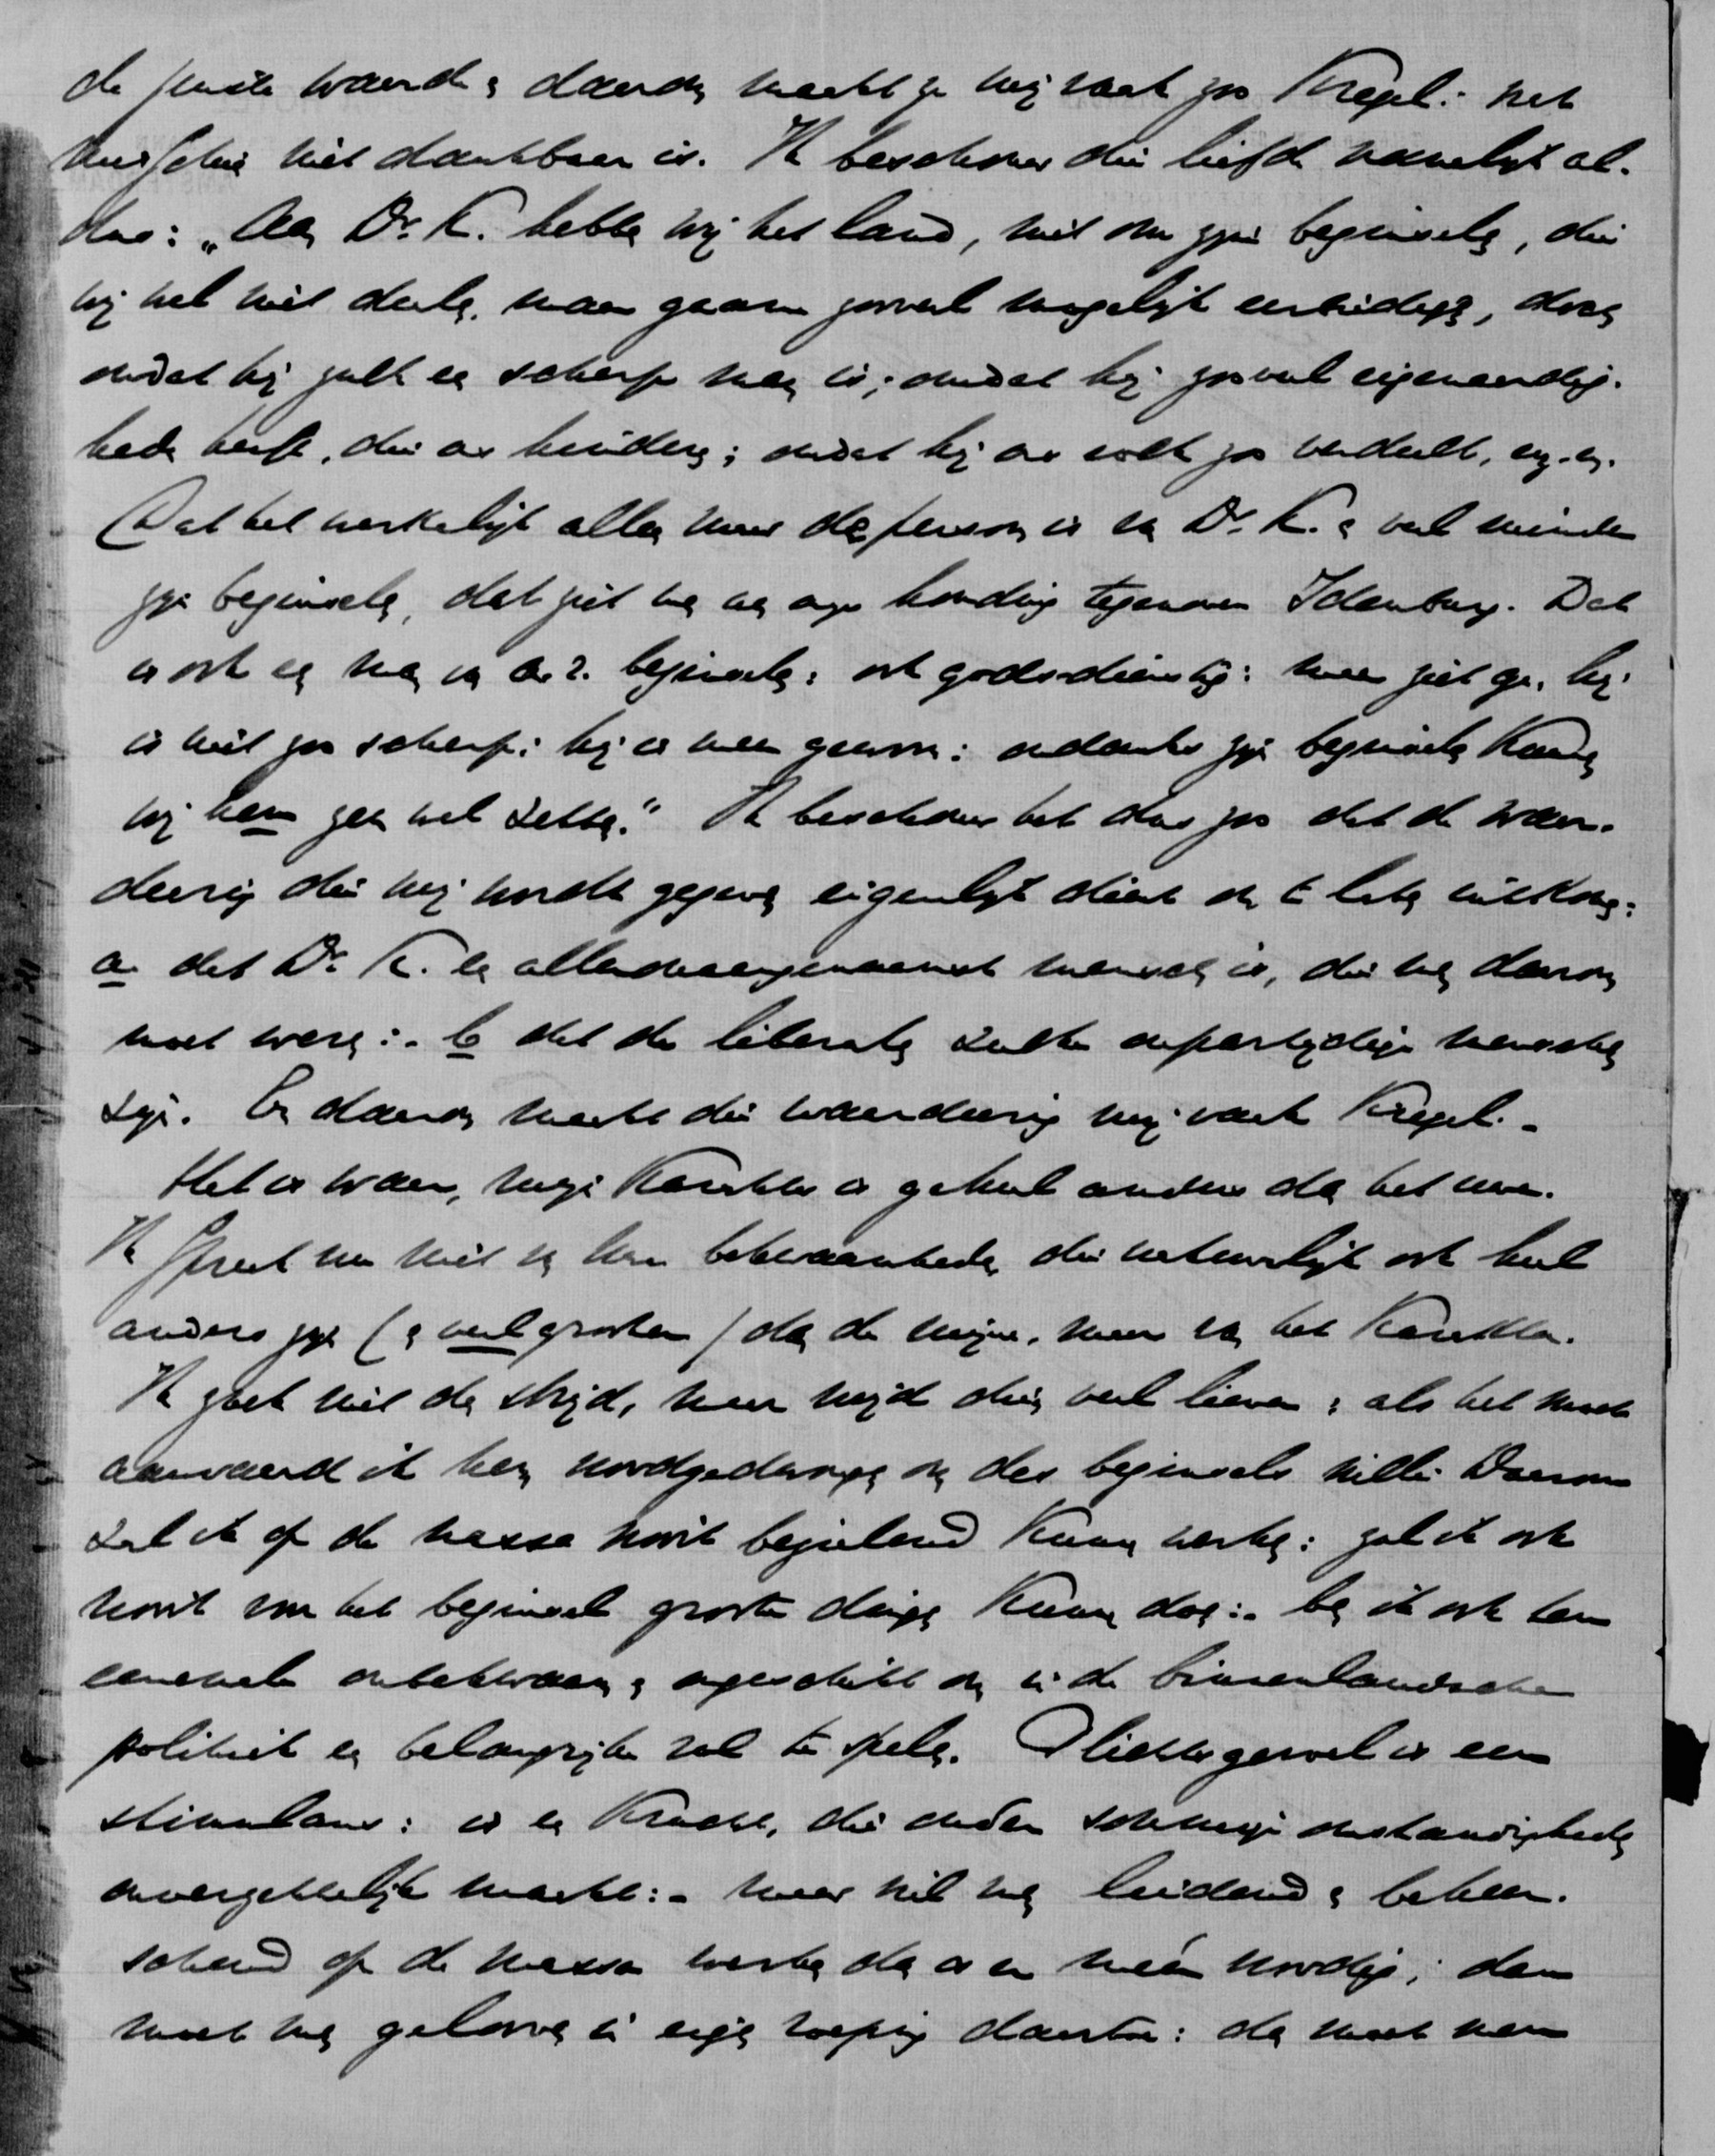 de juiste waarde & daarom maakt ze mij vaak zoo kregel: het
misschien niet dankbaar is. Ik beschouw die liefde namelijk al-
dus: „Aan Dr. K. hebben wij het land, niet om zijn beginselen, die
wij wel niet deelen, maar gaarne zooveel mogelijk eerbiedigen, doch
omdat hij zulk een scherp man is; omdat hij zooveel eigenaardig-
heden heeft, die ons hinderen; omdat hij ons volk zoo verdeelt, enz. enz.
Dat het werkelijk alleen maar de persoon is van Dr. K. & veel minder
zijn beginselen, dat ziet men aan onze houding tegenover Idenburg. Dat
is ook een man van a.r. beginselen: ook godsdienstig: maar ziet ge, hij
is niet zoo scherp: hij is meer gewoon: ondanks zijn beginselen kunnen
wij hem zeer wel zetten." Ik beschouw het dus zoo dat de waar-
deering die mij wordt gegeven eigenlijk dient om te laten uitkomen:
a dat Dr. K. een alleronaangenaamst mensch is, die men daarom
moet weren:- b dat de liberalen zulke onpartijdige menschen
zijn. En daarom maakt die waardeering mij vaak kregel.-
Het is waar, mijn karakter is geheel anders dan het uwe.
Ik spreek nu niet van uw bekwaamheden die natuurlijk ook heel
anders zijn (& veel grooter) dan de mijne, maar van het karakter.
Ik zoek niet den strijd, maar mijd dien veel liever; als het moet
aanvaard ik hem noodgedwongen om des beginsels wille. Daarom
zal ik op de massa nooit bezielend kunnen werken: zal ik ook
nooit voor het beginsel groote dingen kunnen doen:- ben ik ook ten
eenenmale onbekwaam & ongeschikt om in de binnenlandsche
politiek een belangrijke rol te spelen. Plichtsgevoel is een
stimulans: is een kracht, die onder sommige omstandigheden
onverzettelijk maakt:- maar wil men leidend & beheer-
schend op de massa werken dan is er méér noodig; dan
moet men gelooven in eigen roeping daartoe: dan moet men